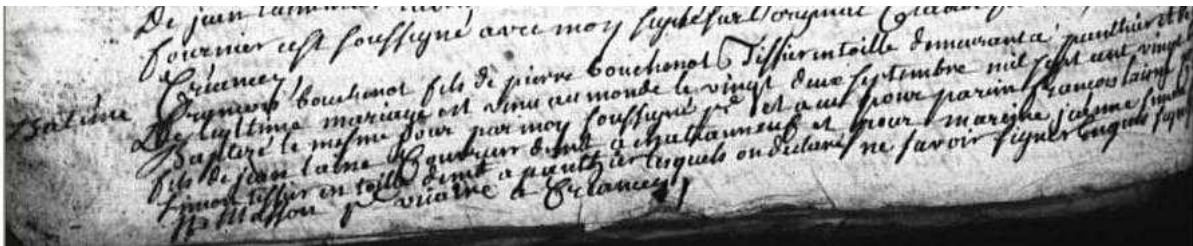 De jean
fournier est soussigné avec moy sur l'original
Créancey
Batême
françois bouchenot fils de pierre bouchenot tissier en toille demeurant a panthier et de
Legitime mariage est venu au monde le vingt deux septembre mil sept cent vingt
Baptizé le mesme jour par moy soussigné pre et a eu pour parin françois laine
fils de jean laine demt a chateauneuf et pour mareine jeanne simon
simon tissier en toille demt a panthier lesquels on declaré ne savoir signer enquis
Masson pre vicaire a Créancey